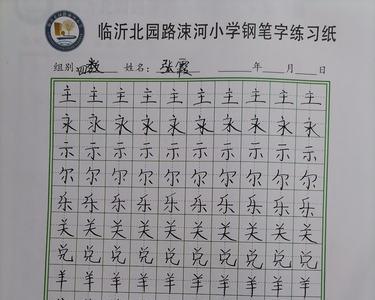 临沂北园路涑河小学钢笔字练习纸
组别 四数 姓名：张霞 年 月 日
主 主 主 主 主 主 主 主 主 主
永 永 永 永 永 永 永 永 永 永
示 示 示 示 示 示 示 示 示 示
尔 尔 尔 尔 尔 尔 尔 尔 尔 尔
乐 乐 乐 乐 乐 乐 乐 乐 乐 乐
关 关 关 关 关 关 关 关 关 关
兑 兑 兑 兑 兑 兑 兑 兑 兑 兑
羊 羊 羊 羊 羊 羊 羊 羊 羊 羊